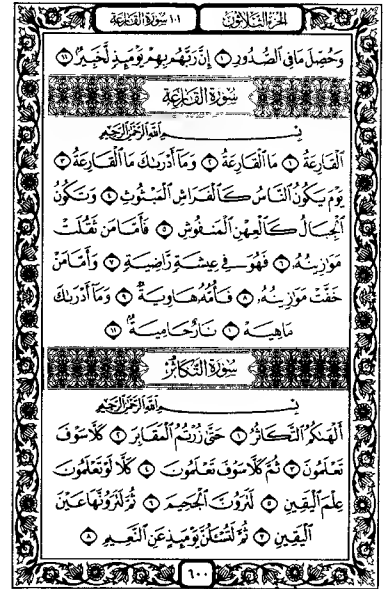 الجزء الثلاثون
١٠١ سورة القارعة
وَحُصِّلَ مَا فِي ٱلصُّدُورِ ١٠ إِنَّ رَبَّهُم بِهِمْ يَوْمَئِذٍ لَّخَبِيرٌۢ ١١
سورة القارعة
بِسْمِ ٱللَّهِ ٱلرَّحْمَٰنِ ٱلرَّحِيمِ
ٱلْقَارِعَةُ ١ مَا ٱلْقَارِعَةُ ٢ وَمَآ أَدْرَىٰكَ مَا ٱلْقَارِعَةُ ٣
يَوْمَ يَكُونُ ٱلنَّاسُ كَٱلْفَرَاشِ ٱلْمَبْثُوثِ ٤ وَتَكُونُ
ٱلْجِبَالُ كَٱلْعِهْنِ ٱلْمَنفُوشِ ٥ فَأَمَّا مَن ثَقُلَتْ
مَوَٰزِينُهُۥ ٦ فَهُوَ فِى عِيشَةٍ رَّاضِيَةٍ ٧ وَأَمَّا مَنْ
خَفَّتْ مَوَٰزِينُهُۥ ٨ فَأُمُّهُۥ هَاوِيَةٌ ٩ وَمَآ أَدْرَىٰكَ
مَا هِيَهْ ١٠ نَارٌ حَامِيَةٌۢ ١١
سورة التكاثر
بِسْمِ ٱللَّهِ ٱلرَّحْمَٰنِ ٱلرَّحِيمِ
أَلْهَىٰكُمُ ٱلتَّكَاثُرُ ١ حَتَّىٰ زُرْتُمُ ٱلْمَقَابِرَ ٢ كَلَّا سَوْفَ
تَعْلَمُونَ ٣ ثُمَّ كَلَّا سَوْفَ تَعْلَمُونَ ٤ كَلَّا لَوْ تَعْلَمُونَ
عِلْمَ ٱلْيَقِينِ ٥ لَتَرَوُنَّ ٱلْجَحِيمَ ٦ ثُمَّ لَتَرَوُنَّهَا عَيْنَ
ٱلْيَقِينِ ٧ ثُمَّ لَتُسْـَٔلُنَّ يَوْمَئِذٍ عَنِ ٱلنَّعِيمِ ٨
٦٠٠